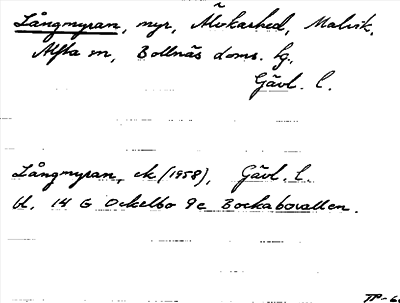 Långmyran, myr, Älvkarhed, Malvik,
Alfta sn, Bollnäs doms. hg.
Gävl. l.
Långmyran, ek (1958), Gävl. l.
bl. 14 G Ockelbo 9c Bockabovallen.